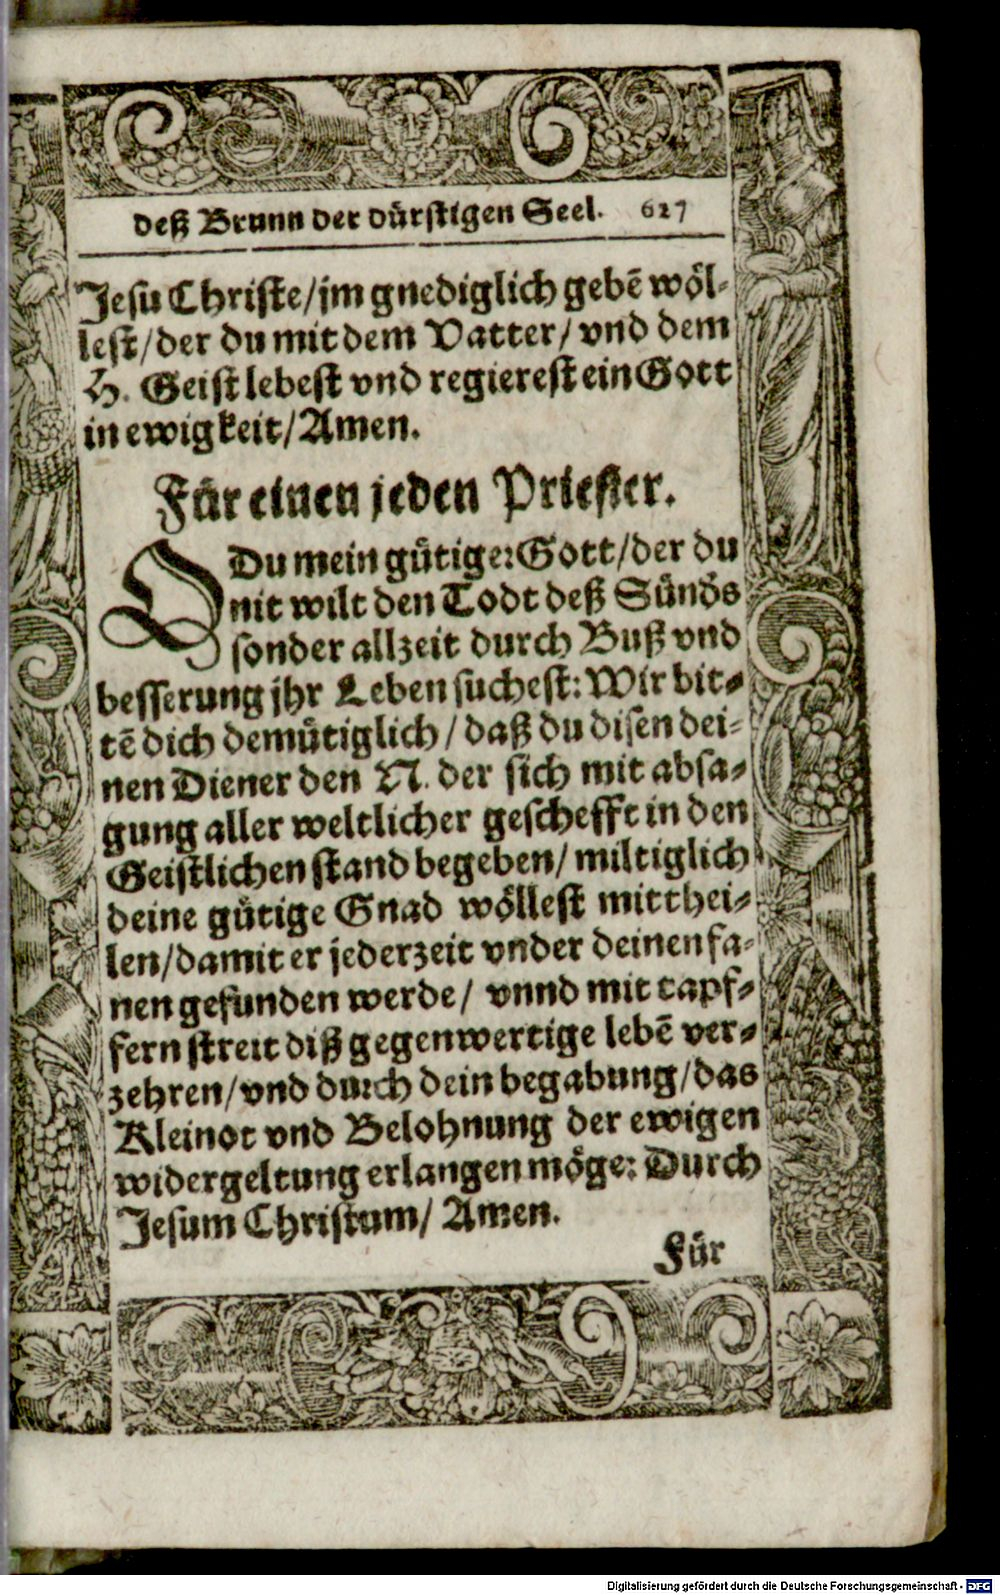 deß Brunn der dürstigen Seel. 627
Jesu Christe/jm gnediglich gebē wöl-
lest/der du mit dem Vatter/ vnd dem
H. Geist lebest vnd regierest ein Gott
in ewigkeit/Amen.
Für einen jeden Priester.
O Du mein gütiger Gott/der du
nit wilt den Todt deß Sünd's
sonder allzeit durch Buß vnd
besserung jhr Leben suchest: Wir bit-
tē dich demütiglich/daß du disen dei-
nen Diener den N. der sich mit absa-
gung aller weltlicher geschefft in den
Geistlichen stand begeben/ miltiglich
deine gütige Gnad wöllest mitthei-
len/damit er jederzeit vnder deinen fa-
nen gefunden werde/ vnnd mit tapf-
fern streit diß gegenwertige lebē ver-
zehren/vnd durch dein begabung/das
Kleinot vnd Belohnung der ewigen
widergeltung erlangen möge: Durch
Jesum Christum/ Amen.
Für
Digitalisierung gefördert durch die Deutsche Forschungsgemeinschaft - DFG